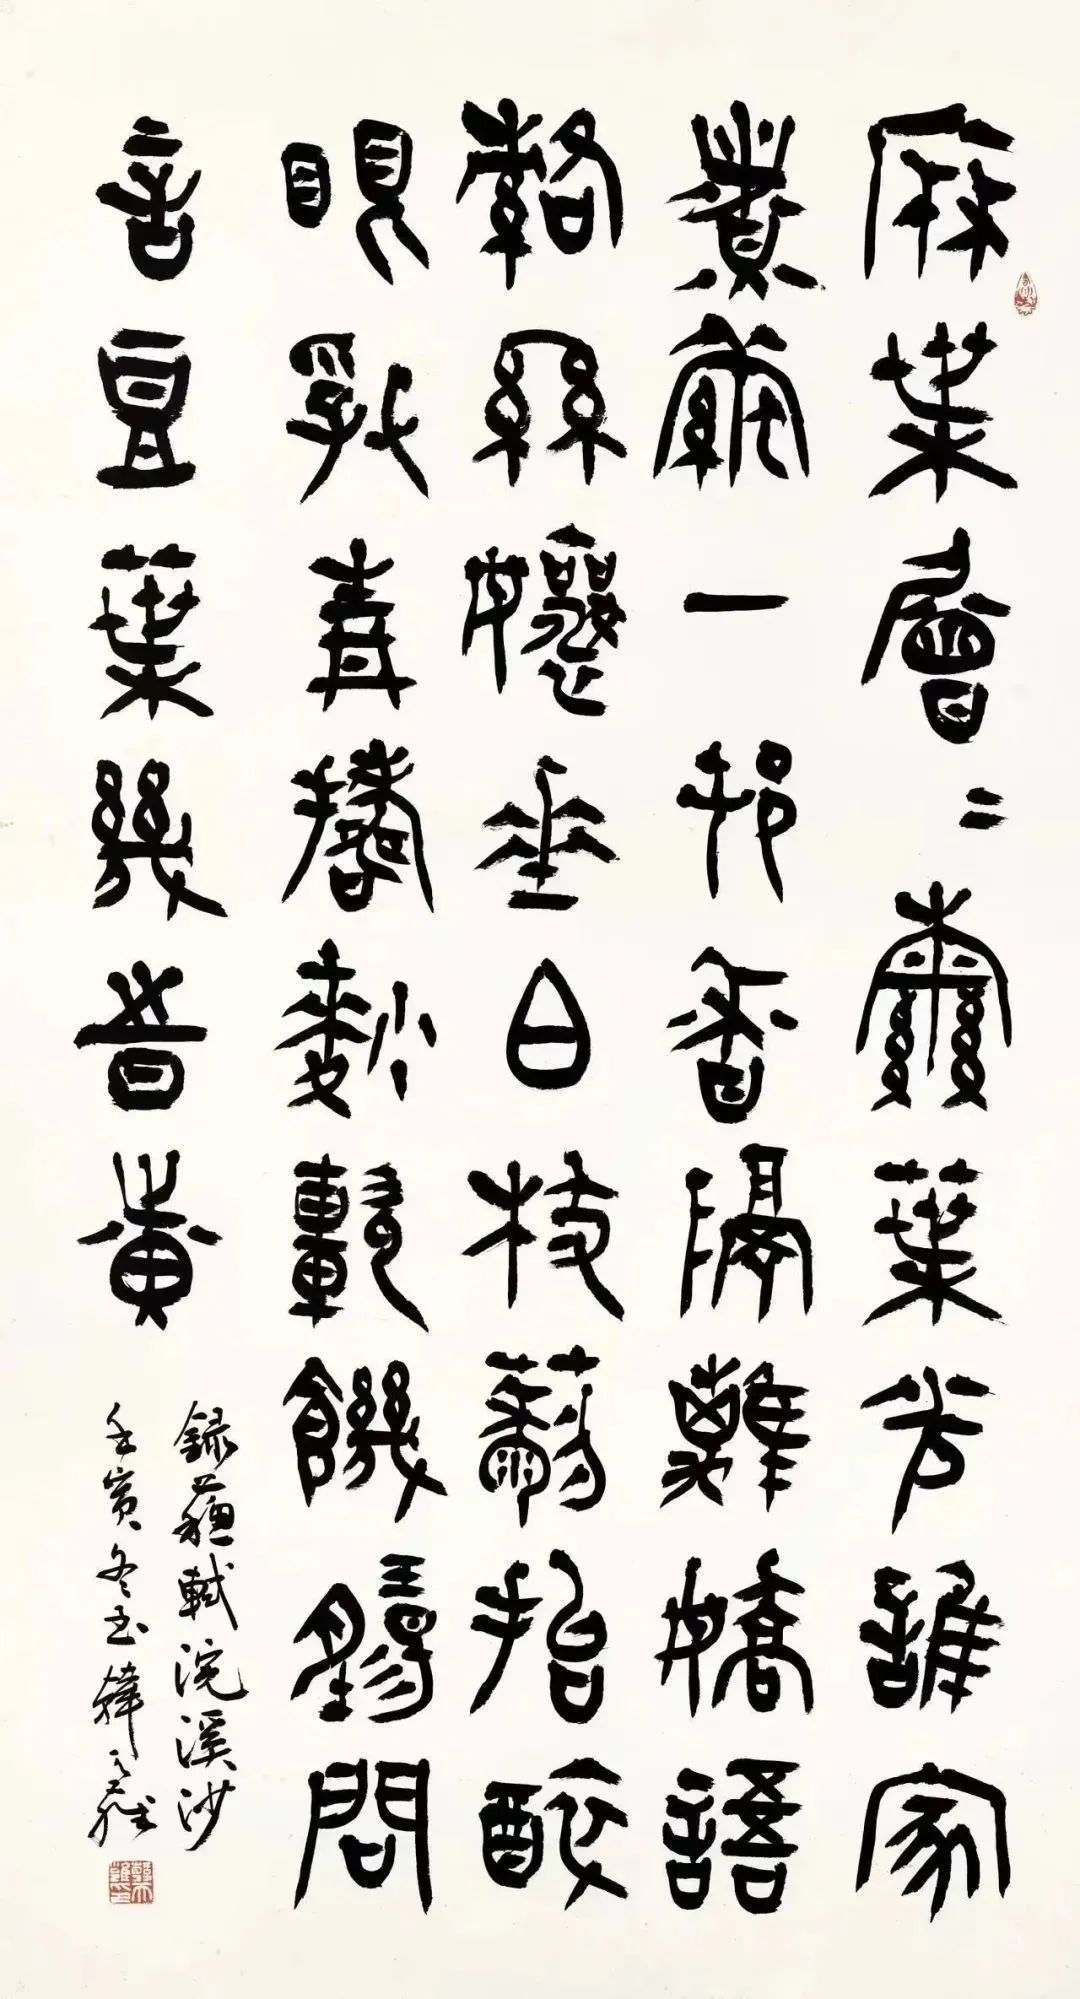 麻葉層〻檾葉光誰家
煮繭一邨香隔離嬌語
絡絲娘垂白枝藜抬醉
眼捋青擣麨輭饑腸問
言豆葉幾旹黃
錄蘇軾浣溪沙
壬寅冬韓天雍